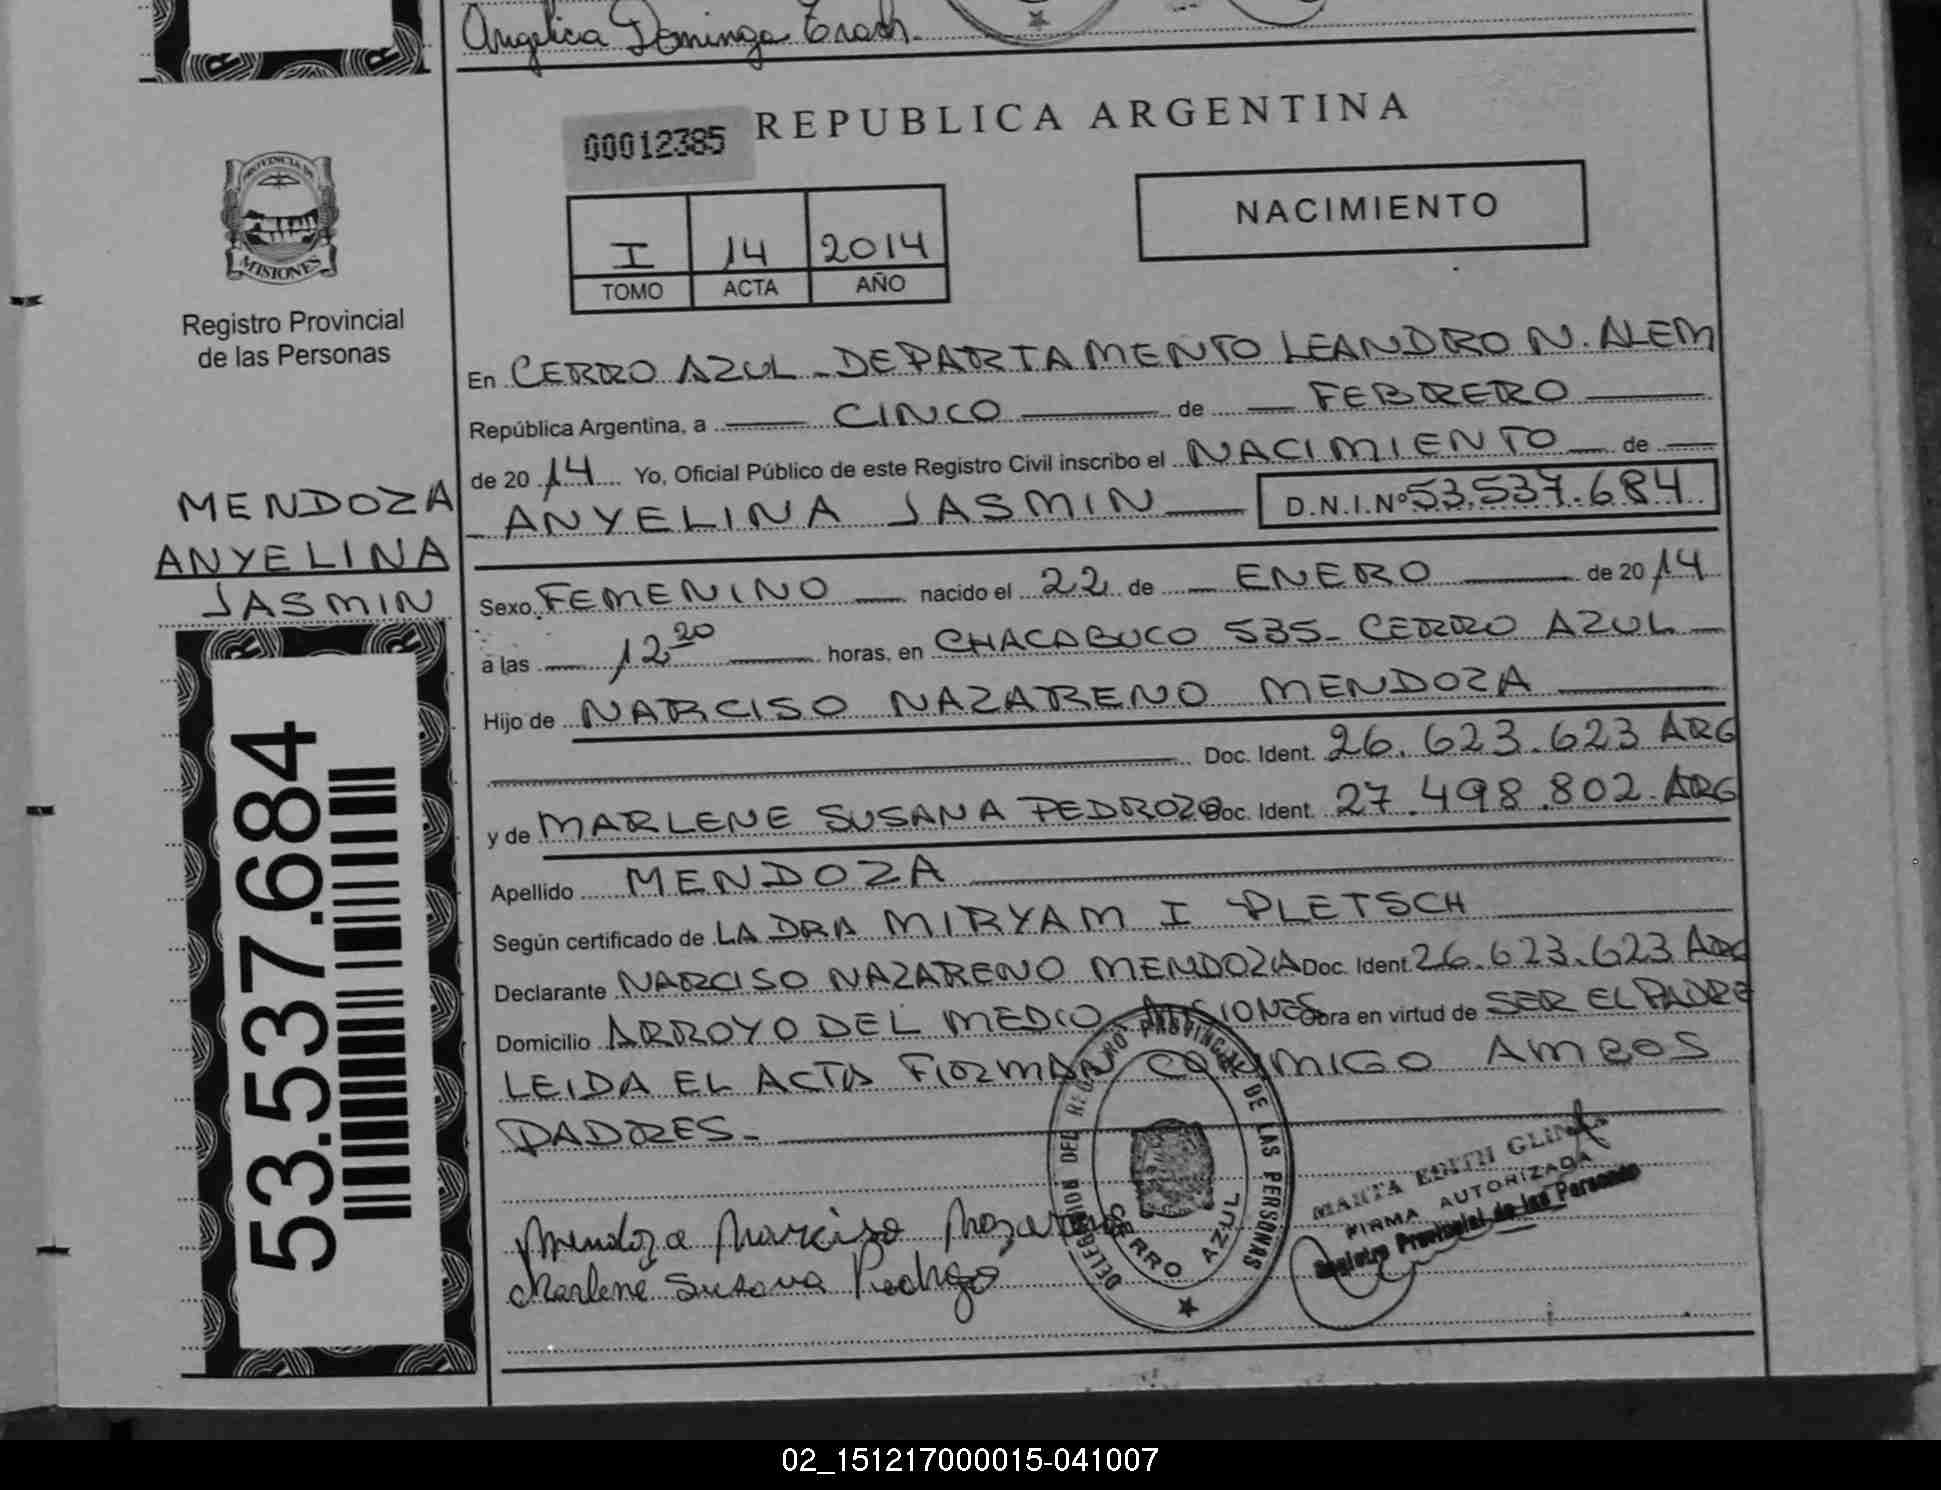 Angelica Dominga
REPUBLICA ARGENTINA
00012385
NACIMIENTO
I 14 2014
TOMO ACTA AÑO
PROVINCIA DE
MISIONES
Registro Provincial
de las Personas
En CERRO AZUL - DEPARTAMENTO LEANDRO N. ALEM
República Argentina, a CINCO de FEBRERO
de 20 14 Yo, Oficial Público de este Registro Civil inscribo el NACIMIENTO de
ANYELINA JASMIN D.N.I.Nº 53.537.684
MENDOZA
ANYELINA
JASMIN
Sexo FEMENINO nacido el 22 de ENERO de 20 14
a las 12 20 horas, en CHACABUCO 535 - CERRO AZUL
Hijo de NARCISO NAZARENO MENDOZA
Doc. Ident. 26.623.623 ARG
y de MARLENE SUSANA PEDROZO Doc. Ident. 27.498.802 ARG
Apellido MENDOZA
Según certificado de LA DRA MIRYAM I PLETSCH
Declarante NARCISO NAZARENO MENDOZA Doc. Ident. 26.623.623 ARG
Domicilio ARROYO DEL MEDIO MISIONES Obra en virtud de SER EL PADRE
LEIDA EL ACTA FIRMAN CONMIGO AMBOS
PADRES.-
53.537.684
Mendoza Narciso Nazareno
Marlene Susana Pedrozo
DELEGACION DEL REGISTRO PROVINCIAL DE LAS PERSONAS
CERRO AZUL
MARTA EDITH
FIRMA AUTORIZADA
Registro Provincial de las Personas
02_151217000015-041007